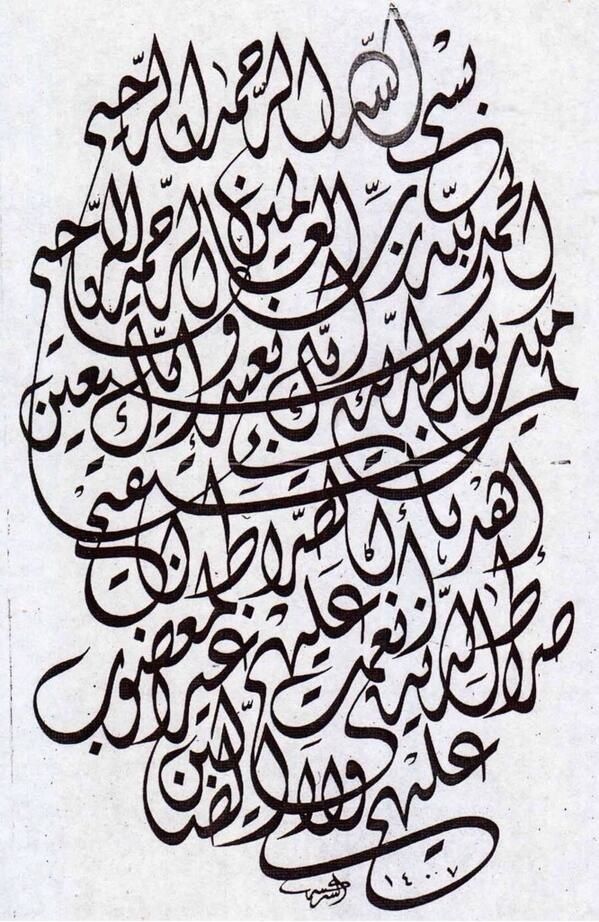 بسم الله الرحمن الرحيم
الحمد لله رب العالمين الرحمن الرحيم
ملك يوم الدين إياك نعبد وإياك نستعين
اهدنا الصراط المستقيم
صراط الذين أنعمت عليهم غير المغضوب
عليهم ولا الضالين
١٤٠٧